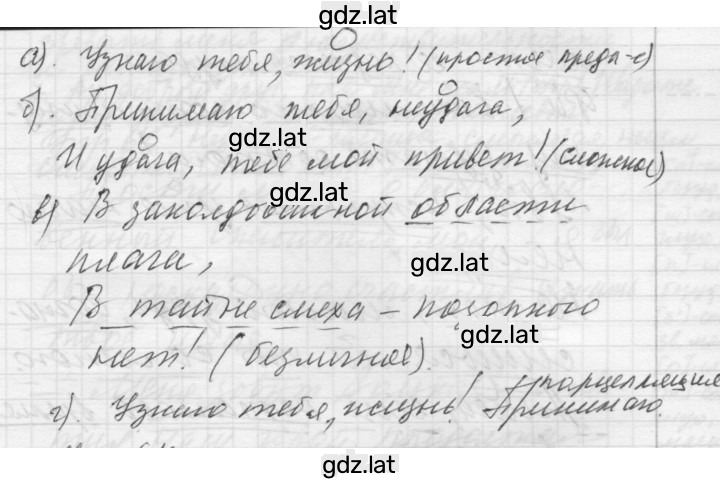 gdz.lat
а). Узнаю тебя, жизнь! (простое предл-е)
б). Принимаю тебя, неудача,
gdz.lat
И удача, тебе мой привет! (сложное)
gdz.lat
в) В заколдованной области
плача,
gdz.lat
В тайне смеха – позорного
gdz.lat
нет! (безличное).
парцелляция
г). Узнаю тебя, жизнь! Принимаю.
gdz.lat